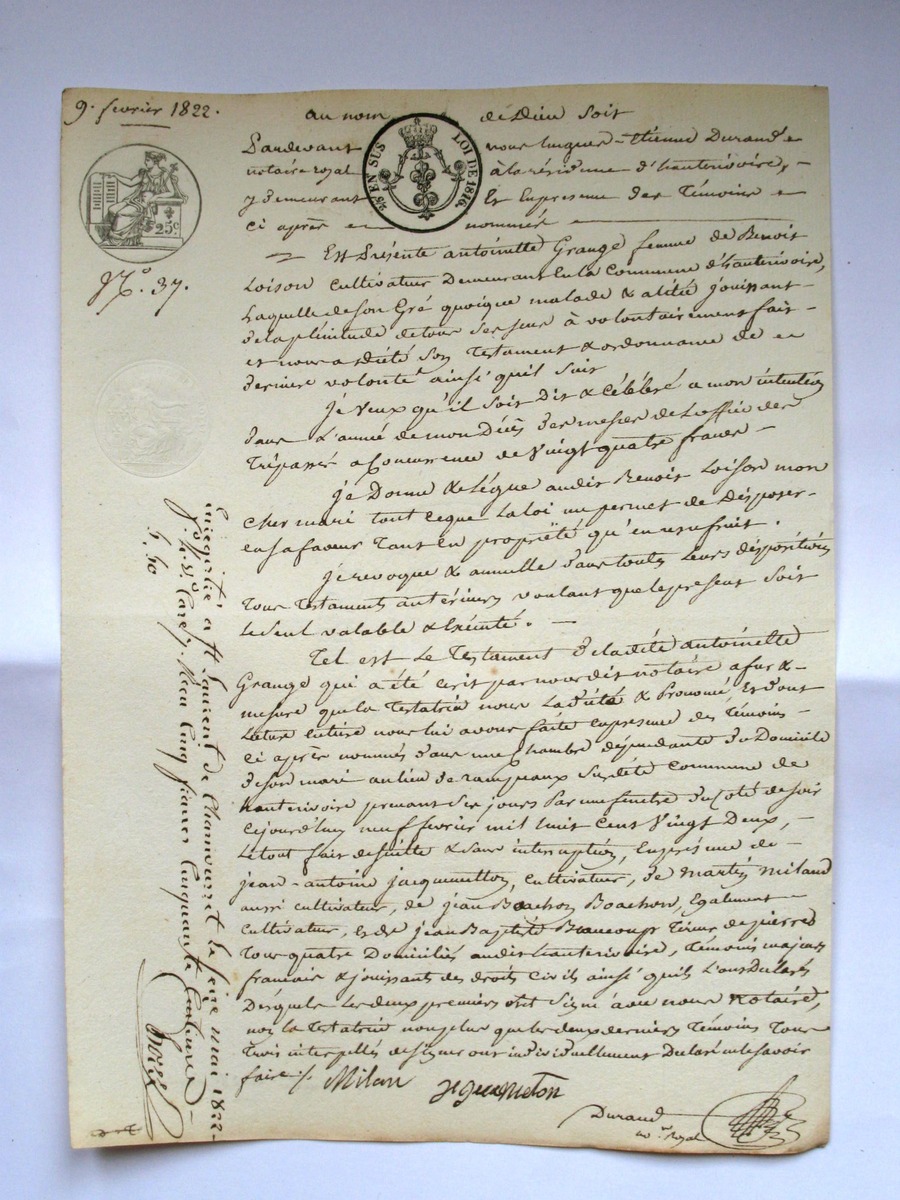 9. fevrier 1822.
au nom de Dieu soit
Pardevant nous hugues-Etienne Durand
notaire royal à la résidence d'hauterivoire,
y demeurant Et En presence des Témoins
ci après nommés
28e EN SUS LOI DE 1816.
25c.
N.° 37.
Est Présente antoinette Grange femme de Benoit
Loison cultivateur Demeurant En la Commune d'hauterivoire,
Laquelle de son Gré quoique malade & alitée jouissant
de la plénitude de tous ses sens à volontairement fait
et nous a dicté son Testament & ordonnance de
derniere volonté ainsi quil suit
je Veux qu'il soit Dit & Célébré a mon intention
dans L'année de mon Décès des messes de L'office des
Trépassés a Concurrence de Vingt quatre francs
je Donne & Légue audit Benoit Loison mon
cher mari tout ceque La loi me permet de Disposer
en sa faveur Tant en propriété qu'en usufruit.
je revoque & annulle dans toutes Leurs dispositions
Tous Testaments antérieurs voulant que le présent soit
Le seul valable & Exécuté.
Tel est Le Testament de ladite antoinette
Grange qui a été ecrit par nous dit notaire a fur &
mesure que la Testatrice nous La dicté & Prononcé, Et dont
Lecture entière nous lui avons faite En presence des Témoins
Ci après nommés dans une Chambre dépendante du Domicile
de son mari au lieu de rampeaux Susdite Commune de
hauterivoire prenant ses jours Par une fenêtre du Coté de soir
Cejourd'hui neuf fevrier mil huit Cent Vingt Deux,
Le tout fait de suitte & sans interruption, En présence de
jean-antoine jacquemetton, cultivateur, de martin miland
aussi cultivateur, de jean Boachon, Egalement
Cultivateur, et de jean Baptiste Beaucoup Tireur de pierres
Tous quatre Domiciliés audit hauterivoire, Témoins majeurs
francais & jouissant des droits Civils ainsi quils L'ont Déclaré
Desquels Les deux premiers ont Signé avec nous Notaire,
non la Testatrice non plus que les deux derniers Témoins Tous
Trois interpellés de signer ont individuellement Déclaré ne le savoir
faire ./. Milan jacquemeton
Durand
No.re royal
Enregistré a St Laurent de Chamousset le seize mai 1822
Reçu Cinq francs Cinquante Centimes